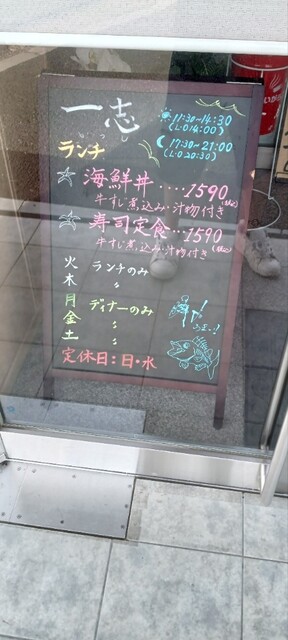 一志
いっし
11:30~14:30
(L.O 14:00)
17:30~21:00
(L.O 20:30)
ランチ
海鮮丼····1590
牛すじ煮込み・汁物付き(税込)
寿司定食···1590
牛すじ煮込み・汁物付き(税込)
火 ランチのみ
木 〃
月 ディナーのみ
金 〃
土 〃
定休日:日・水